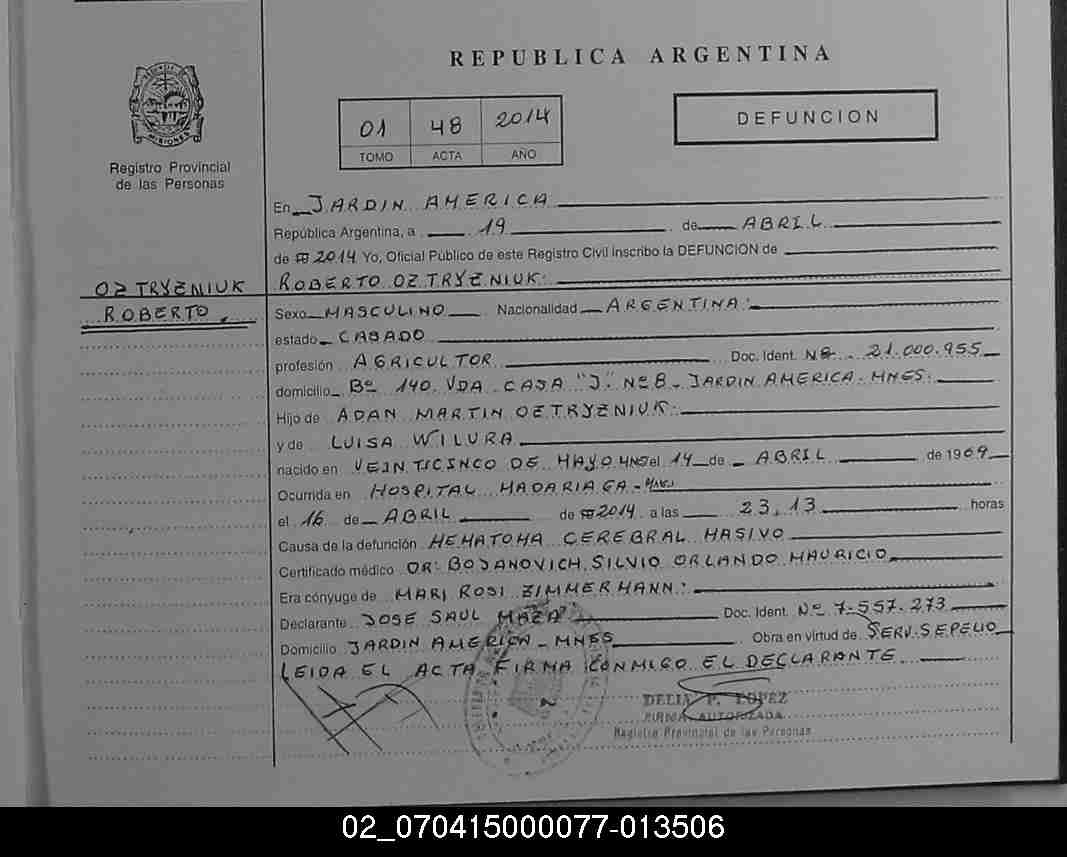 REPUBLICA ARGENTINA
MISIONES
Registro Provincial
de las Personas
01 48 2014
TOMO ACTA AÑO
DEFUNCION
En JARDIN AMERICA
República Argentina, a 19 de ABRIL
de 2014 Yo, Oficial Público de este Registro Civil inscribo la DEFUNCION de
OZTRYZNIUK
ROBERTO OZTRYZNIUK.
ROBERTO.
Sexo MASCULINO Nacionalidad ARGENTINA.
estado CASADO
profesión AGRICULTOR Doc. Ident. Nº 21.000.955
domicilio Bº 140 VDA CASA "J" Nº 8 - JARDIN AMERICA - MNES.
Hijo de ADAN MARTIN OZTRYZNIUK.
y de LUISA WILURA
nacido en VEINTICINCO DE MAYO MNS el 14 de ABRIL de 1969
Ocurrida en HOSPITAL MADARIAGA -
el 16 de ABRIL de 2014 a las 23,13 horas
Causa de la defunción HEMATOMA CEREBRAL MASIVO
Certificado médico DR: BOJANOVICH, SILVIO ORLANDO MAURICIO
Era cónyuge de MARI ROSI ZIMMERMANN:
Declarante JOSE SAUL MAZA Doc. Ident. Nº 7.557.273
Domicilio JARDIN AMERICA - MNES Obra en virtud de SERV. SEPELIO
LEIDA EL ACTA FIRMA CONMIGO EL DECLARANTE
DELIA P. LOPEZ
FIRMA AUTORIZADA
Registro Provincial de las Personas
02_070415000077-013506